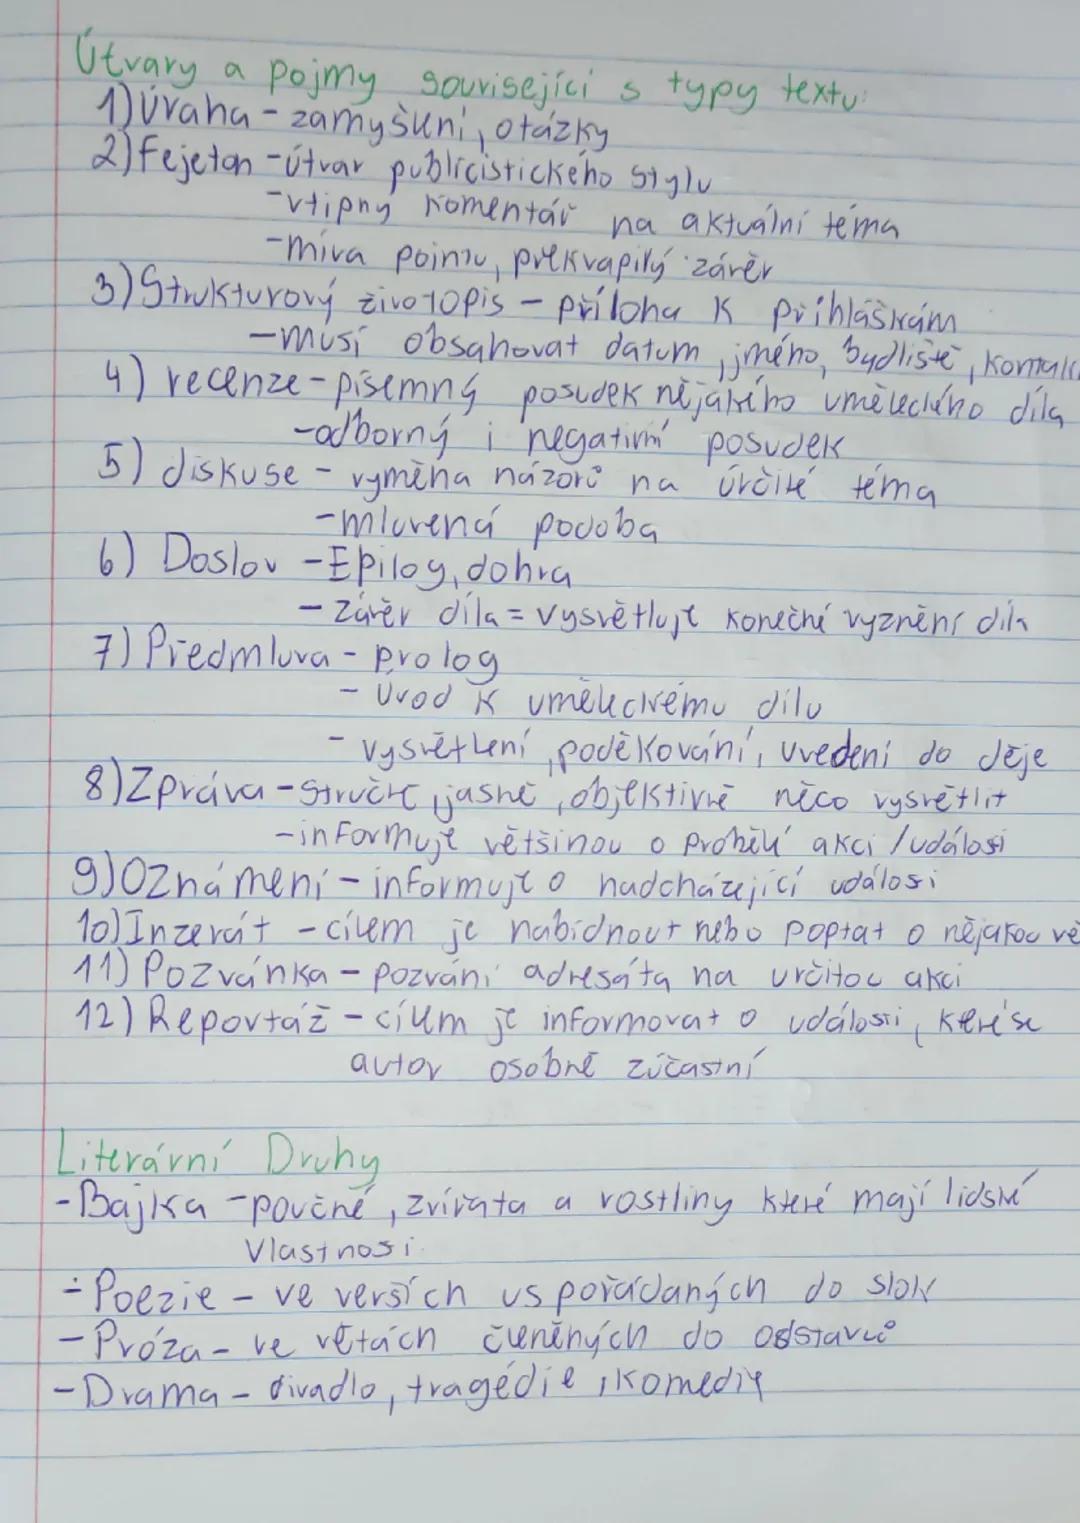 Útvary a pojmy související s typy textu:
1) Úvaha - zamyšlení, otázky
2) Fejeton - útvar publicistického stylu
- vtipný komentář na aktuální téma
- mívá pointu, překvapilý závěr
3) Strukturový životopis - příloha k přihláškám
- musí obsahovat datum, jméno, bydliště, kontakt
4) recenze - písemný posudek nějakého uměleckého díla
- odborný i negativní posudek
5) diskuse - vyměna názorů na určité téma
- mluvená podoba
6) Doslov - Epilog, dohra
- závěr díla = vysvětluje konečné vyznění díla
7) Předmluva - prolog
- Úvod k uměleckému dílu
- vysvětlení, poděkování, uvedení do děje
8) Zpráva - stručně, jasně, objektivně něco vysvětlit
- informuje většinou o proběhlé akci / událosi
9) Oznámení - informuje o nadcházející událosi
10) Inzerát - cílem je nabídnout nebo poptat o nějakou vě
11) Pozvánka - pozvání adresáta na určitou akci
12) Reportáž - cílem je informovat o události, které se
autor osobně zúčastní
Literární Druhy
- Bajka - poučné, zvířata a rostliny které mají lidské
vlastnosi
- Poezie - ve verších uspořádaných do slok
- Próza - ve větách členěných do odstavců
- Drama - divadlo, tragédie, komedie